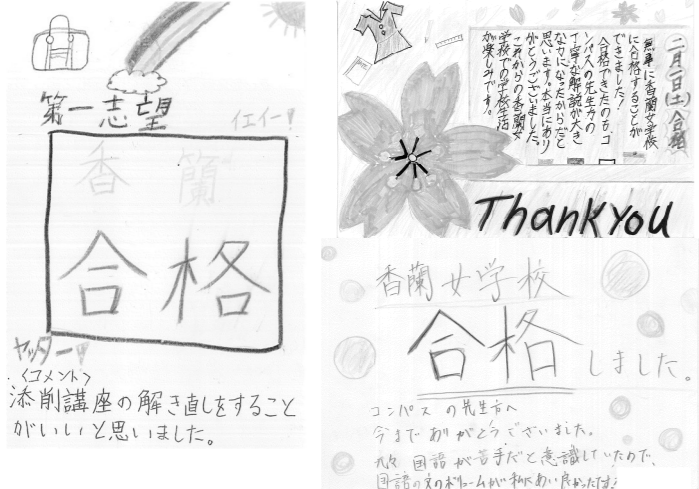 第一志望
イエイー!
香蘭
合格
ヤッター!
〈コメント〉
添削講座の解き直しをすること
がいいと思いました。
二月一日(土)合格
無事に香蘭女学校
に合格することが
できました!
合格できたのも、コ
ンパスの先生方の
丁寧な解説が大き
な力になったからだと
思います。本当にあり
がとうございました。
これからの香蘭女
学校での学校生活
が楽しみです。
Thank you
香蘭女学校
合格しました。
コンパスの先生方へ
今までありがとうございました。
元々国語が苦手だと意識していたので、
国語の文のボリュームが私にあい良かったです